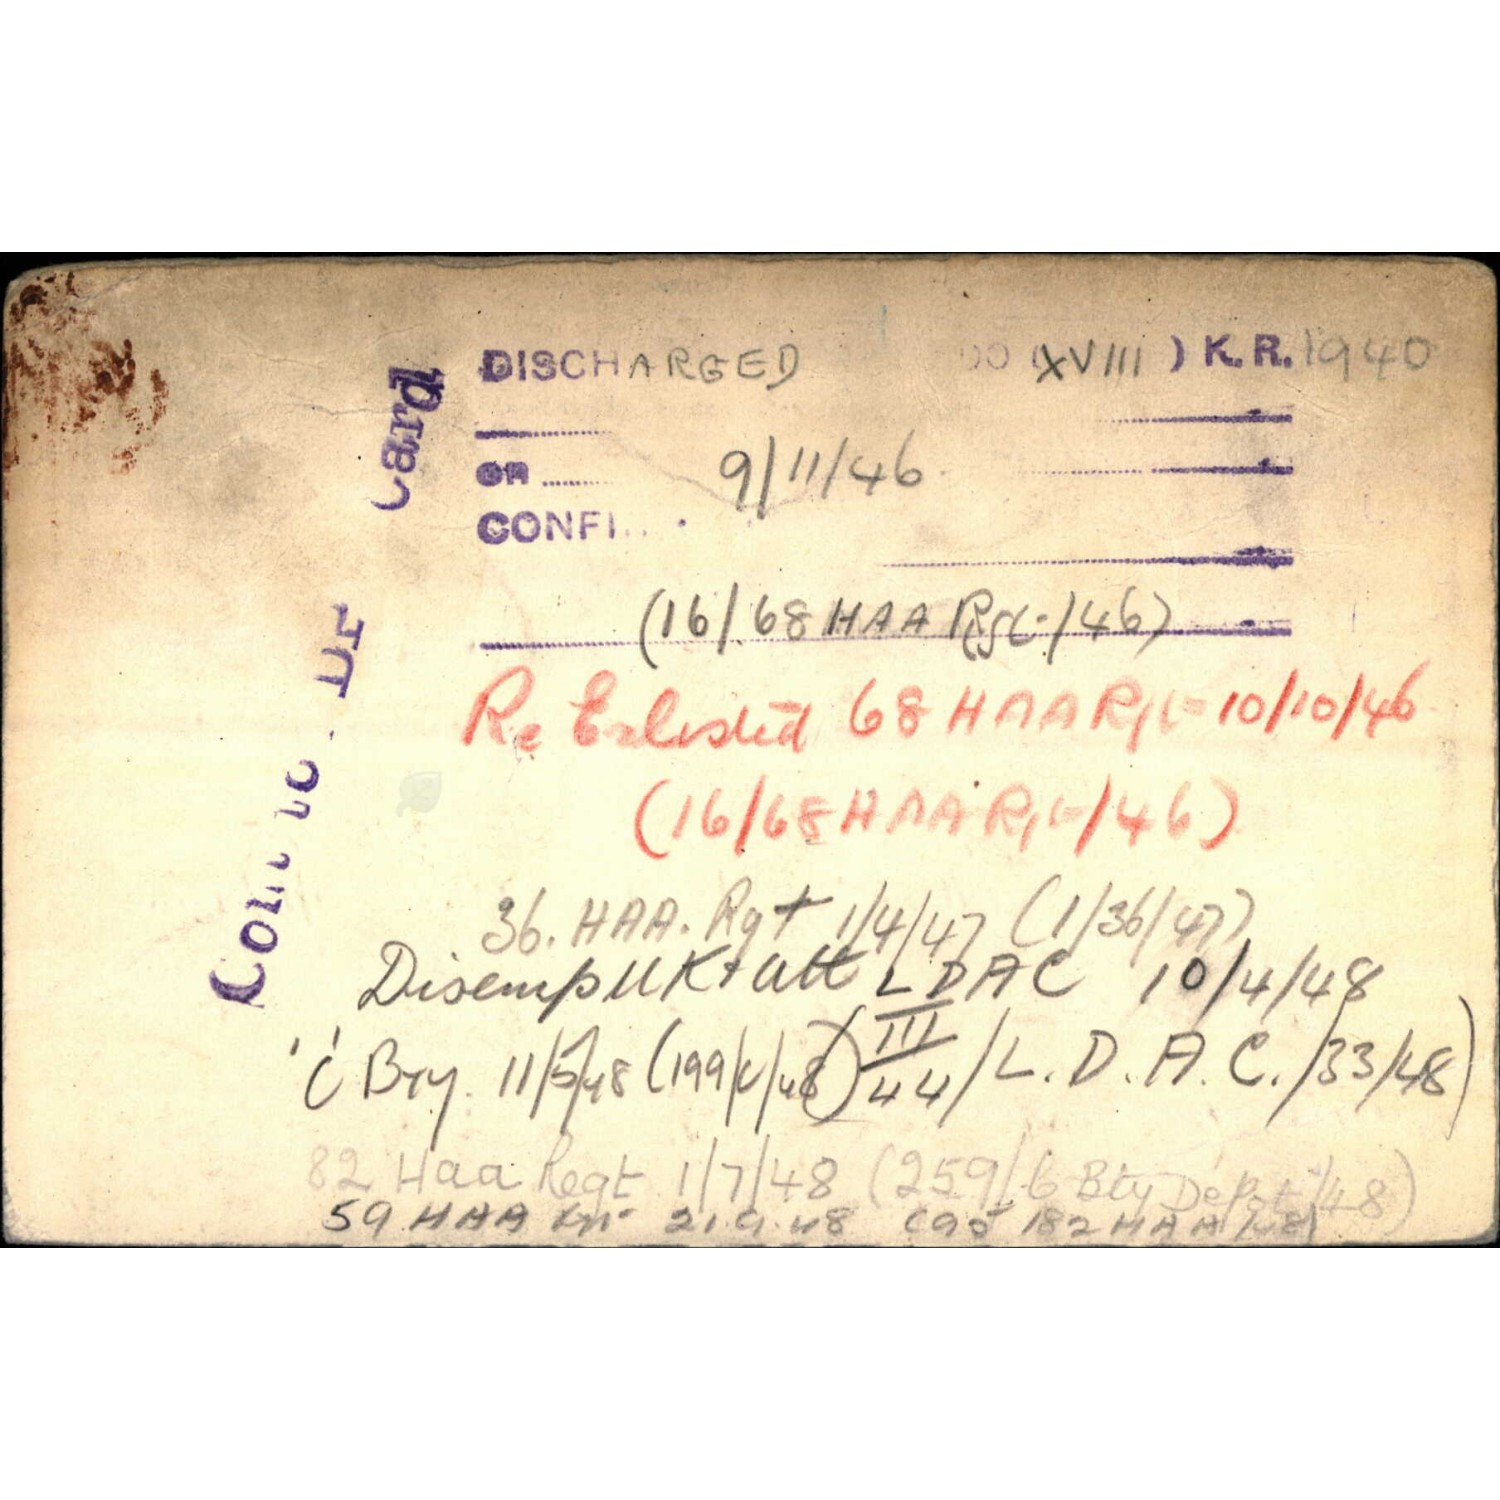 DISCHARGED (XVIII) K.R. 1940
OR 9/11/46
CONFI
(16/68 HAA Rgt/46)
Re Enlisted 68 HAA Rgt 10/10/46
(16/68 HAA Rgt/46)
36. HAA. Rgt 1/4/47 (1/36/47)
Disemp UK + att LDAC 10/4/48
'C' Bty. 11/5/48 (199/C/48) III/44/L.D.A.C./33/48)
82 Haa Regt 1/7/48 (259/6 Bty Depot/48)
59 HAA 21.9.48 (95 182 HAA/48)
Card